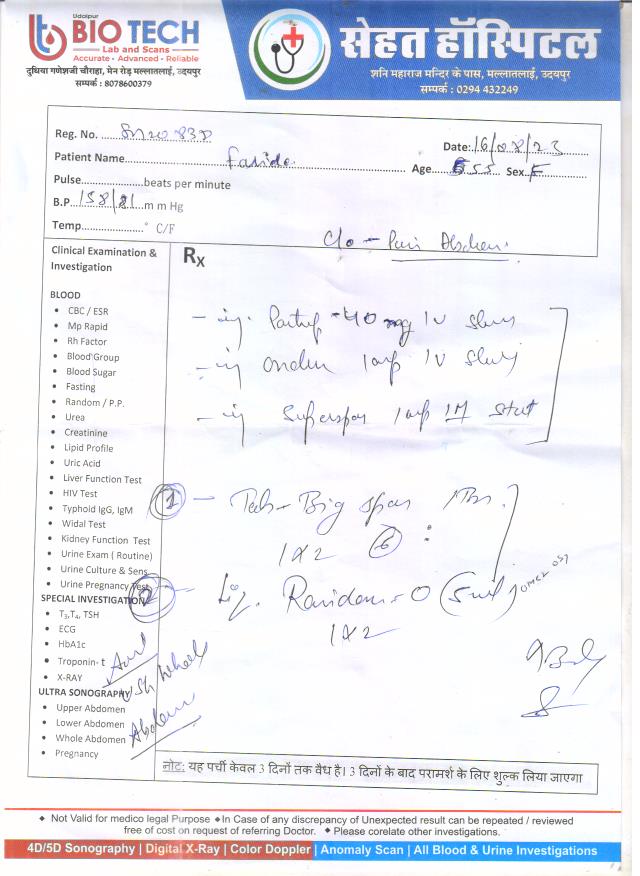 Udaipur
BIO TECH
Lab and Scans
Accurate - Advanced - Reliable
दुधिया गणेशजी चौराहा, मेन रोड़ मल्लातलाई, उदयपुर
सम्पर्क : 8078600379
सेहत हॉस्पिटल
शनि महाराज मन्दिर के पास, मल्लातलाई, उदयपुर
सम्पर्क : 0294 432249
Reg. No.
Date: 16/08/23
Patient Name
Age 55 Sex F
Pulse beats per minute
B.P 158/81 m m Hg
Temp ° C/F
C/o - Pain
Clinical Examination &
Investigation
Rx
BLOOD
• CBC / ESR
• Mp Rapid
• Rh Factor
• Blood Group
• Blood Sugar
• Fasting
• Random / P.P.
• Urea
• Creatinine
• Lipid Profile
• Uric Acid
• Liver Function Test
• HIV Test
• Typhoid IgG, IgM
• Widal Test
• Kidney Function Test
• Urine Exam ( Routine)
• Urine Culture & Sens.
• Urine Pregnancy Test
SPECIAL INVESTIGATION
• T3,T4, TSH
• ECG
• HbA1c
• Troponin- t
• X-RAY
ULTRA SONOGRAPHY
• Upper Abdomen
• Lower Abdomen
• Whole Abdomen
• Pregnancy
- inj. 40 mg IV
- inj 1 amp IV
- inj 1 amp IM stat
① - Tab - Big spas
1 x 2
②
1 x 2
नोट: यह पर्ची केवल 3 दिनों तक वैध है। 3 दिनों के बाद परामर्श के लिए शुल्क लिया जाएगा
◆ Not Valid for medico legal Purpose ◆ In Case of any discrepancy of Unexpected result can be repeated / reviewed
free of cost on request of referring Doctor. ◆ Please corelate other investigations.
4D/5D Sonography | Digital X-Ray | Color Doppler | Anomaly Scan | All Blood & Urine Investigations